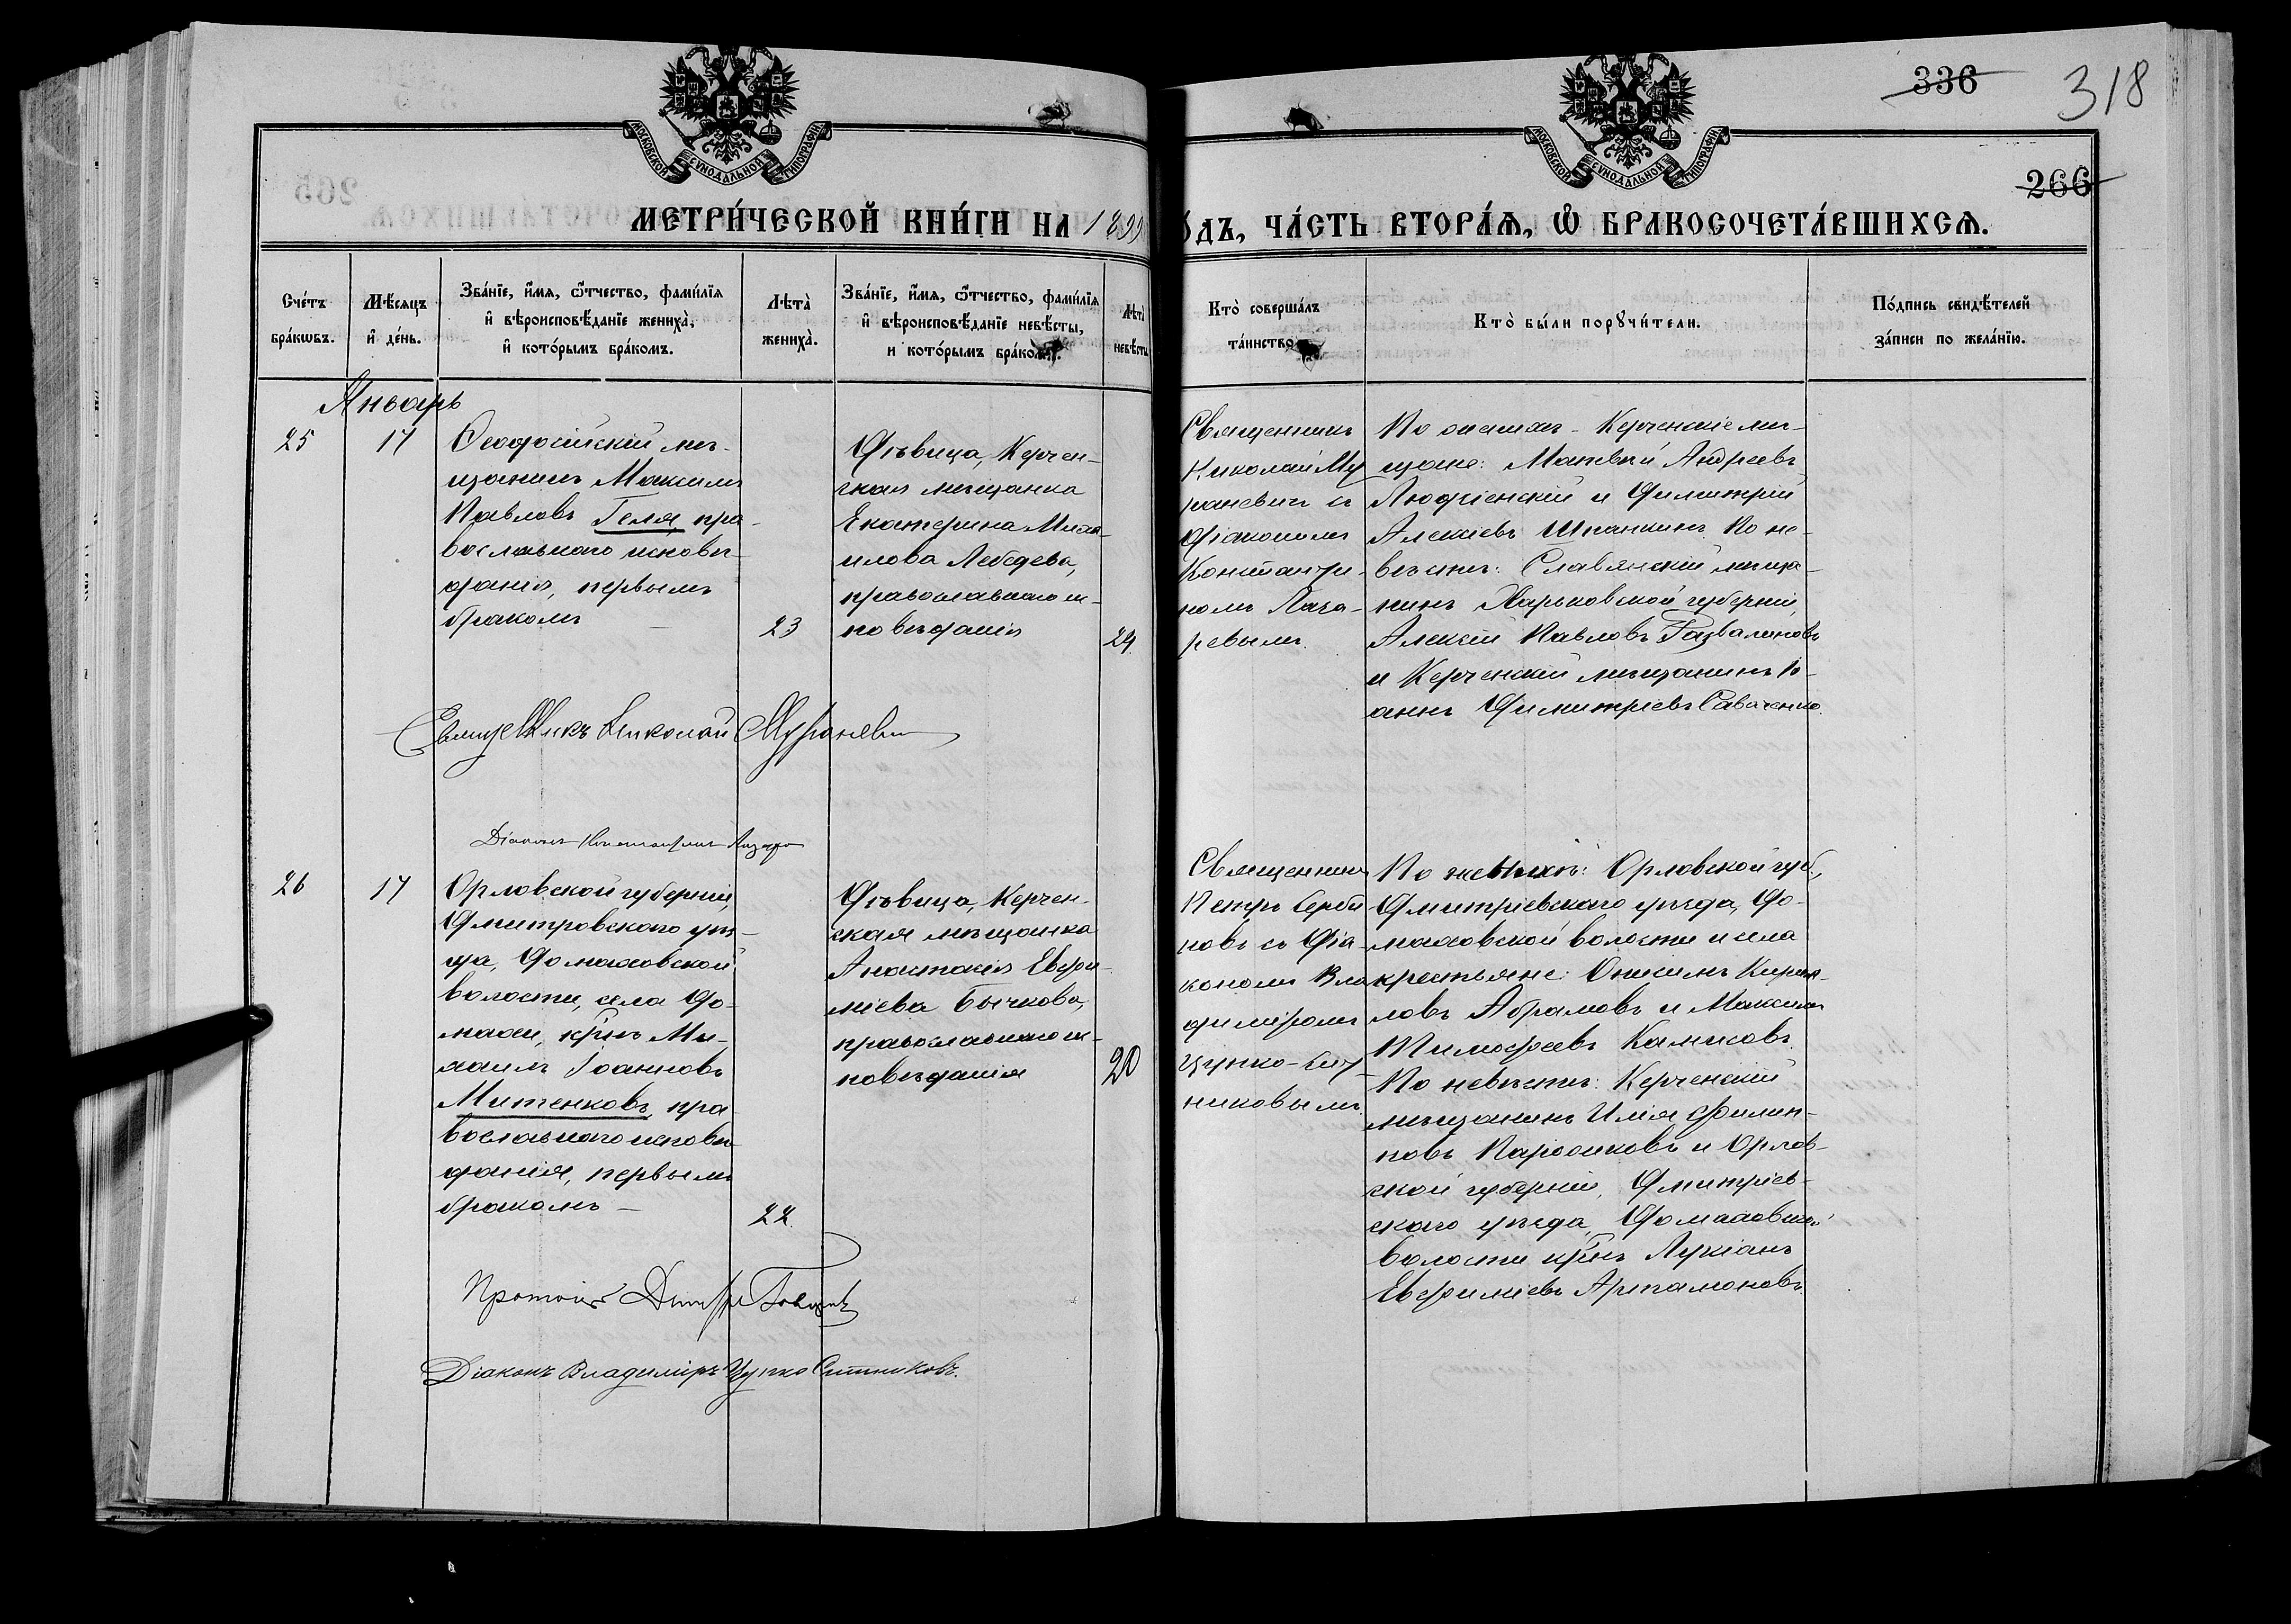 336
318
266
МОСКОВСКОЙ СѴНОДАЛЬНОЙ ТИПОГРАФІИ
МОСКОВСКОЙ СѴНОДАЛЬНОЙ ТИПОГРАФІИ
МЕТРИ́ЧЕСКОЙ КНИ́ГИ НА 1899
О́ДЪ, ЧА́СТЬ ВТОРА́Я, Ѽ БРАКОСОЧЕТА́ВШИХСѦ.
Сче́тъ бра́кѡвъ.
Мѣ́сяцъ и҆ де́нь.
Зва́нїе, и҆́мя, ѻ҆́тчество, фами́лїя и҆ вѣроисповѣ́данїе жениха̀, и҆ кото́рымъ бра́комъ.
Лѣта̀ жениха̀.
Зва́нїе, и҆́мя, ѻ҆́тчество, фами́лїя и҆ вѣроисповѣ́данїе невѣ́сты, и кото́рымъ бра́комъ.
Лѣта̀ невѣ́сты
Кто̀ соверша́лъ та́инство
Кто̀ бы́ли порꙋчи́тели.
По́дпись свидѣ́телей за́писи по жела́нїю.
Январь
25
17
Ѳеодосійскій мѣ-
щанинъ Максимъ
Павловъ Геля, пра-
вославнаго исповѣ-
данія, первымъ
бракомъ
23
Дѣвица, Керчен-
ская мѣщанка
Екатерина Миха-
илова Лебедева,
православнаго ис-
повѣданія
Священникъ
Николай Му
раневич съ
діакономъ
Константи-
номъ Лаза-
ревымъ.
По женихѣ - Керченскіе мѣ-
щане: Матвѣй Андреевъ
и Димитрій
Алексѣевъ Шпанкинъ. По не-
вѣстѣ: Славянскій мѣща-
нинъ Харьковской губерніи,
Алексѣй Павловъ Развалиновъ
и Керченскій мѣщанинъ Іо-
аннъ Димитріевъ Савченко.
Священникъ Николай Мураневич
Діаконъ Константинъ Лазарев
26
17
Орловской губерніи,
Дмитровскаго уѣз-
да, Домаховской
волости, села До-
махи, кр-нъ Ми-
хаилъ Іоанновъ
Митенковъ, пра-
вославнаго исповѣ-
данія, первымъ
бракомъ
22.
Дѣвица, Керчен-
ская мѣщанка
Анастасія Евѳи-
міева Бычкова,
православнаго ис-
повѣданія
20
Священникъ
Петръ Серби
новъ съ діа-
кономъ Вла
диміромъ
Цупко-Сит-
никовымъ.
По женихѣ: Орловской губ.,
Дмитріевскаго уѣзда, До-
маховской волости и села
крестьяне: Онисимъ Кирил-
ловъ Абрамовъ и Максимъ
Тимоѳеевъ
По невѣстѣ: Керченскій
мѣщанинъ Илія Филип-
повъ и Орлов-
ской губерніи, Дмитріев-
скаго уѣзда, Домаховской
волости кр-нъ Лукіанъ
Евѳиміевъ Артамоновъ.
Діаконъ Владиміръ Цупко Ситниковъ.